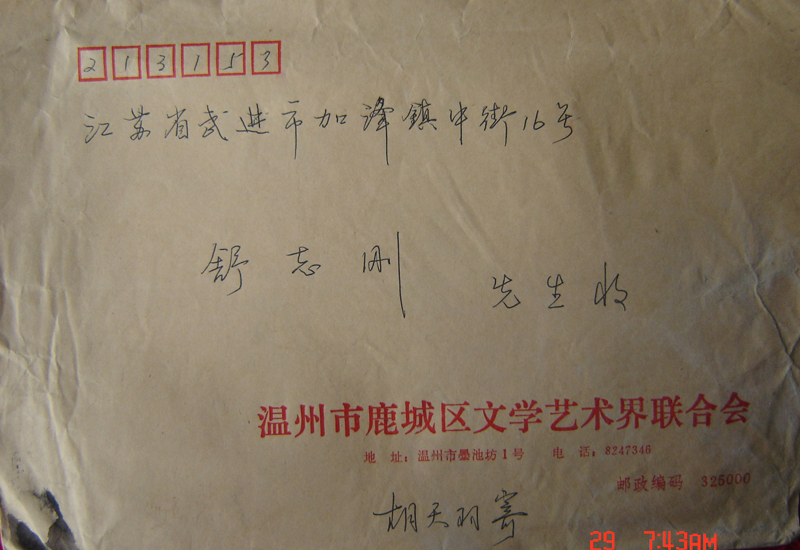 213153
江苏省武进市加泽镇中街16号
舒志刚 先生收
温州市鹿城区文学艺术界联合会
地 址：温州市墨池坊1号 电 话：8247346
邮政编码 325000
胡天羽寄
29 7:43AM